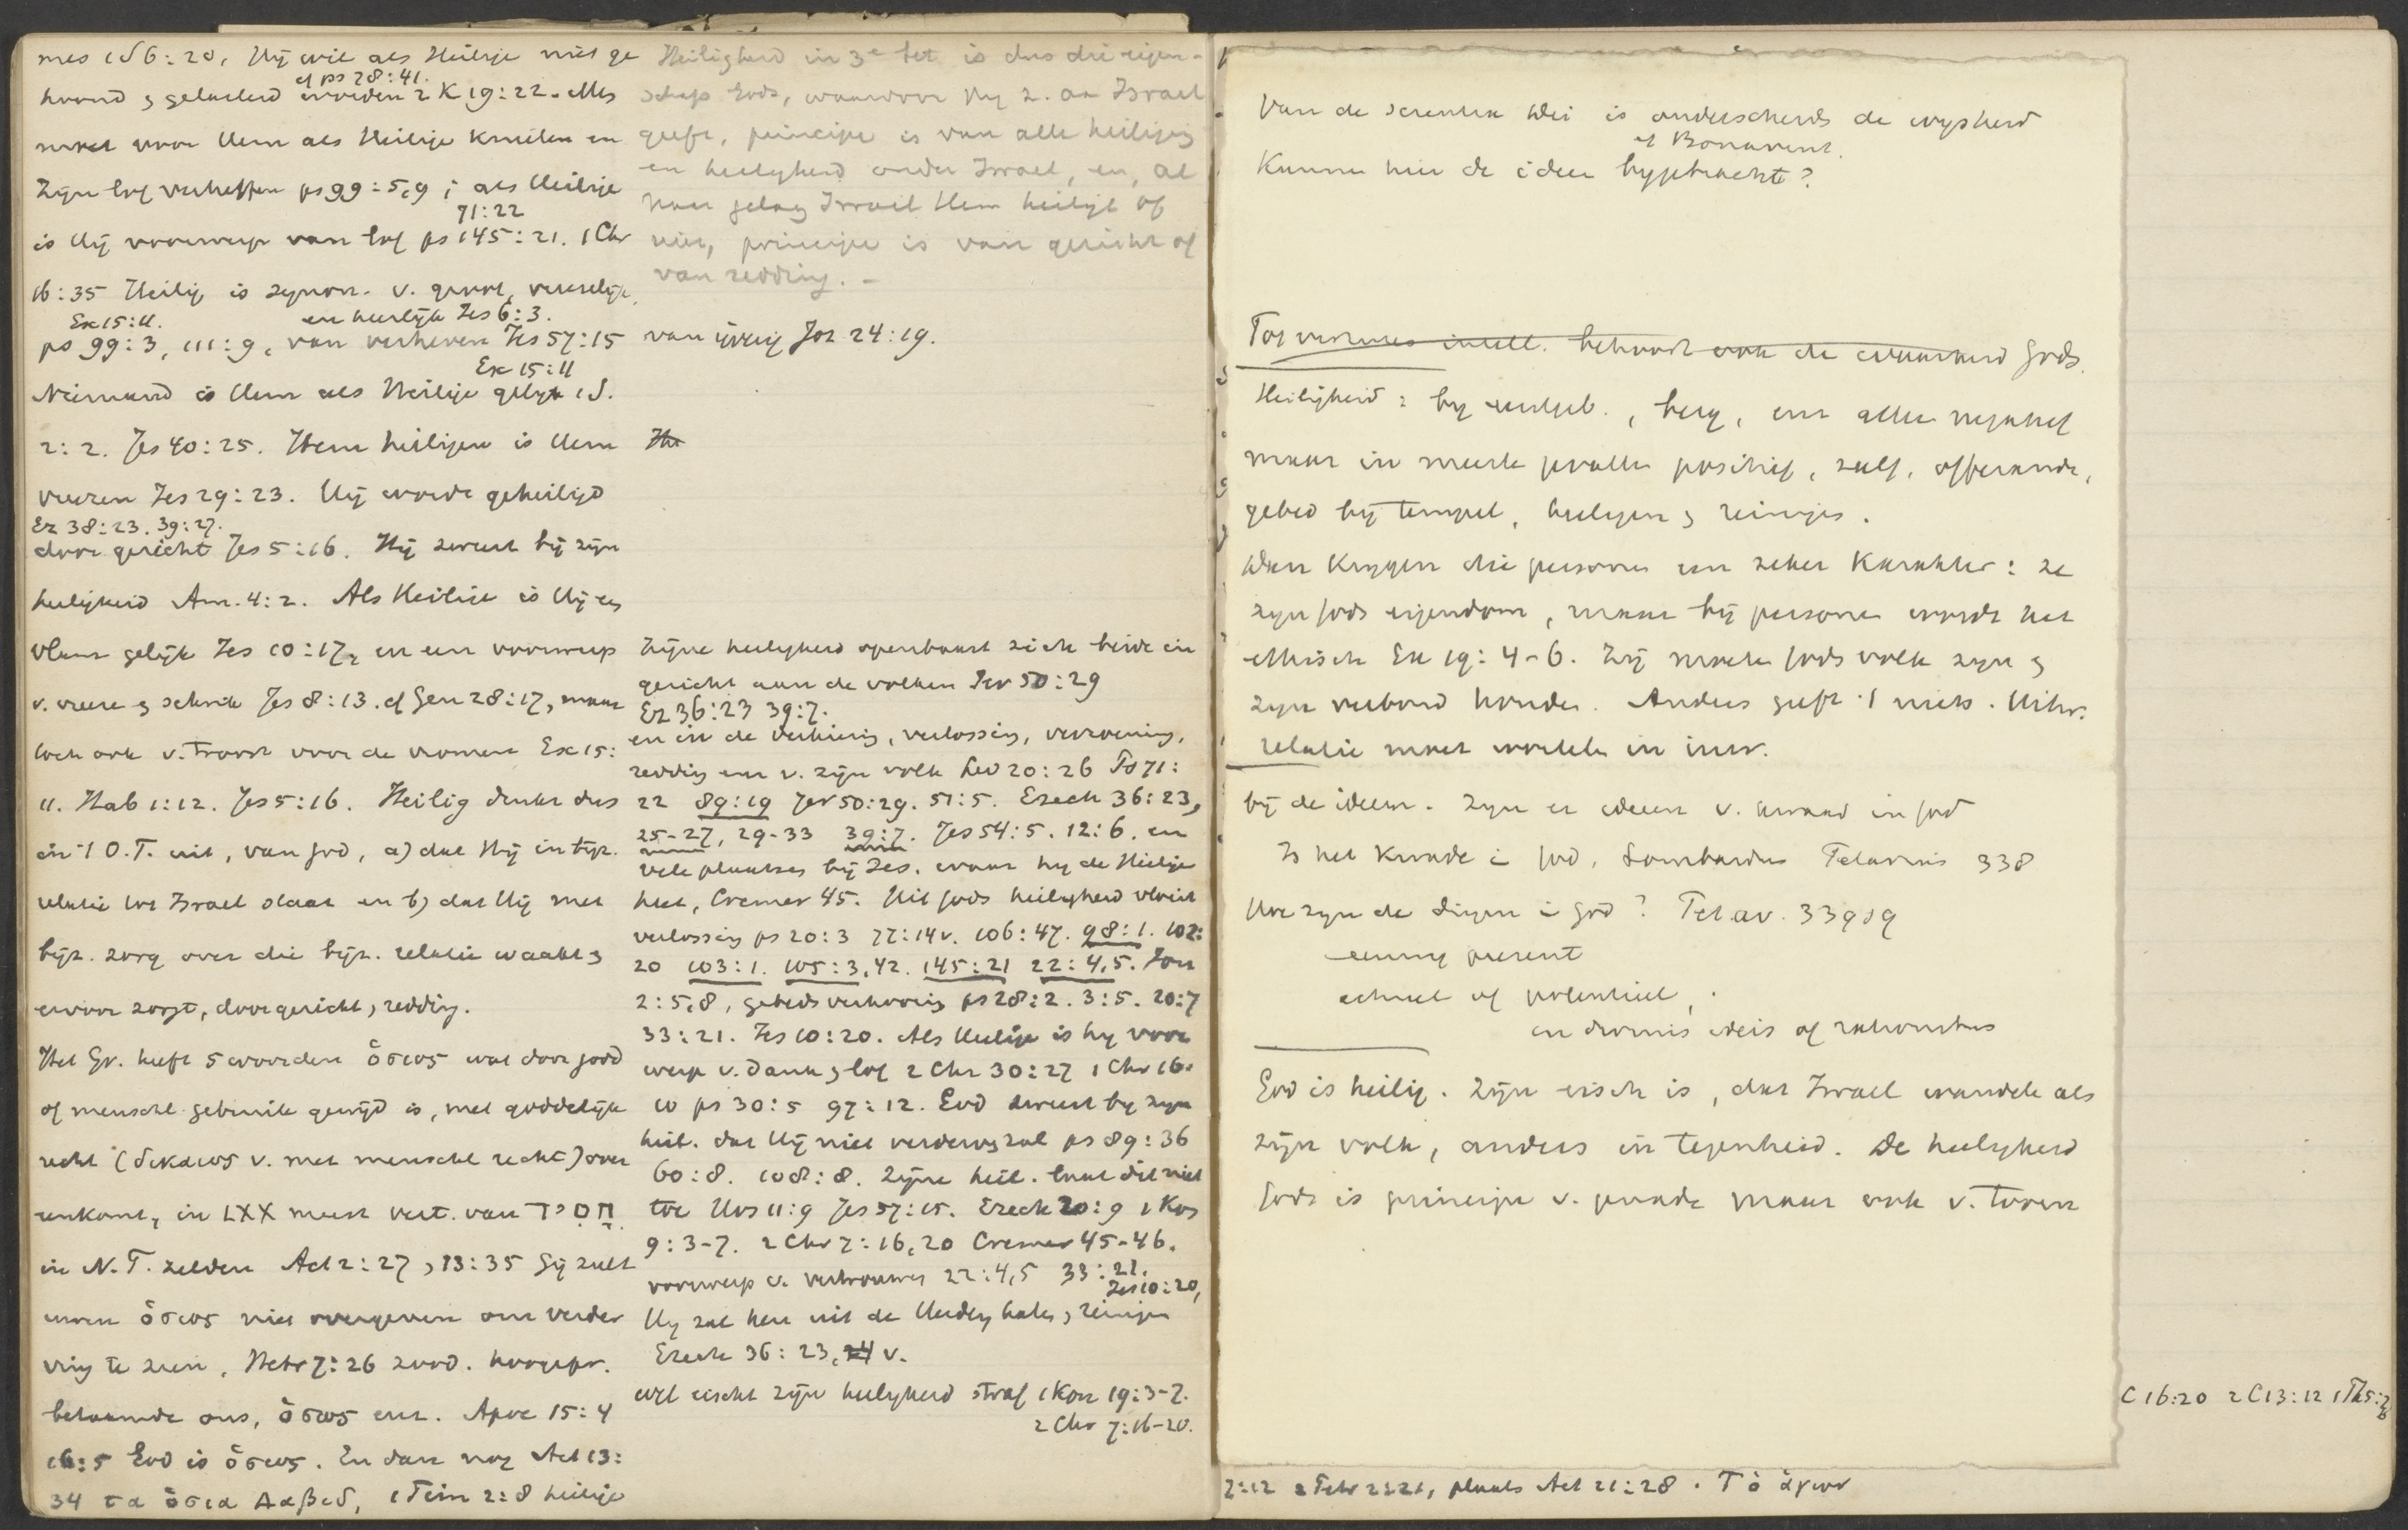 mes 1 S 6:20, Hij wil als Heilige niet ge
cf ps 78:41.
hoond & gelasterd worden 2 K 19:22. Alles
moet voor Hem als Heilige knielen en
Zijn lof verheffen ps 99:5,9; als Heilige
71:22
is Hij voorwerp van lof ps 145:21. 1 Chr
16:35 Heilig is synon. v. groot, vreeselijk,
Ex 15:11. en heerlijk Jes 6:3.
ps 99:3, 111:9, van verheven Jes 57:15
Ex 15:11
Niemand is Hem als Heilige gelijk 1 S.
2:2. Jes 40:25. Hem heiligen is Hem
vreezen Jes 29:23. Hij wordt geheiligd
Ez 38:23. 39:27.
door gericht Jes 5:16. Hij zweert bij zijn
heiligheid Am. 4:2. Als Heilige is Hij een
vlam gelijk Jes 10:17, en een voorwerp
v. vreeze & schrik Jes 8:13. cf Gen 28:17, maar
toch ook v. troost voor de vromen Ex 15:
11. Hab 1:12. Jes 5:16. Heilig drukt dus
in 't O.T. uit, van God, a) dat Hij in bijz.
relatie tot Israel staat en b) dat Hij met
bijz. zorg over die bijz. relatie waakt &
ervoor zorgt, door gericht & redding.
Het Gr. heeft 5 woorden ὅσιος wat door godd
of menschl. gebruik gewijd is, met goddelijk
recht (δικαιος v. met menschl recht) over
eenkomt, in LXX meest vert. van חסיד
in N.T. zelden Act 2:27, 13:35 Gij zult
uwen ὅσιος niet overgeven om verder
ving te zien, Hebr 7:26 zood. hoogepr.
betaamde ons, ὅσιος enz. Apoc 15:4
16:5 God is ὅσιος. En dan nog Act 13:
34 τα ὅσια Δαβιδ, 1 Tim 2:8 heilige
Heiligheid in 3e bet. is dus die eigen-
schap Gods, waardoor Hij z. aan Israel
geeft, principe is van alle heiliging
en heiligheid onder Israel, en, al
naar gelang Israel Hem heiligt of
niet, principe is van gericht of
van redding. -
van ijverig Joz 24:19.
He
Zijne heiligheid openbaart zich beide in
gericht aan de volken Jer 50:29
Ez 36:23 39:7.
en in de verkiezing, verlossing, verzoening,
redding enz v. zijn volk Lev 20:26 Ps 71:
22 89:19 Jer 50:29. 51:5. Ezech 36:23,
25-27, 29-33 39:7. Jes 54:5. 12:6. en
vele plaatsen bij Jes. waar hij de Heilige
heet, Cremer 45. Uit Gods heiligheid vloeit
verlossing ps 20:3 77:14v. 106:47. 98:1. 102:
20 103:1. 105:3,42. 145:21 22:4,5. Jon
2:5,8, gebedsverhooring ps 28:2. 3:5. 20:7
33:21. Jes 10:20. Als Heilige is hij voor
werp v. dank & lof 2 Chr 30:27 1 Chr 16:
10 ps 30:5 97:12. God zweert bij zijn
heil. dat Hij niet verderven zal ps 89:36
60:8. 108:8. Zijne heil. laat dit niet
toe Hos 11:9 Jes 57:15. Ezech 20:9 1 Kon
9:3-7. 2 Chr 7:16,20 Cremer 45-46.
voorwerp v. vertrouwen 22:4,5 33:21.
Jes 10:20,
Hij zal hen uit de Heiden halen & reinigen
Ezech 36:23, 24 v.
wel eischt zijn heiligheid straf 1 Kon 19:3-7.
2 Chr 7:16-20.
Van de scientia Dei is onderscheiden de wijsheid
cf Bonavent.
Kunnen hier de ideen bijgebracht?
Tot intell. behoort ook de waarheid Gods.
Heiligheid: bij , berg, enz alleen negatief
maar in meeste gevallen positief, zalf, offerande,
gebed bij tempel, heiligen & reinigen.
Dan krijgen die personen een zeker karakter: ze
zijn Gods eigendom, maar bij personen wordt het
ethisch Ex 19:4-6. Zij moeten Gods volk zijn &
zijn verbond houden. Anders geeft 't niets. Uitw.
relatie moet wortelen in inw.
bij de ideeen. Zijn er ideeen v. kwaad in God
Is het kwade in God, Lombardus Petavius 338
Hoe zijn de dingen in God? Petav. 339
eeuwig present
actueel of potentieel,
in divinis ideis of rationibus
God is heilig. Zijn eisch is, dat Israel wandele als
zijn volk, anders in tegenheid. De heiligheid
Gods is principe v. genade maar ook v. toorn
C 16:20 2 C 13:12 1 Th 5:26
2:21, plaats Act 21:28. Τὸ ἁγιον